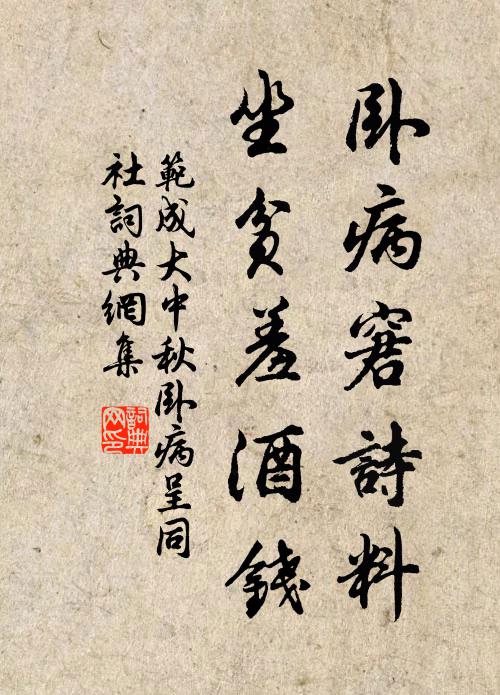 卧病窘詩料
坐貧羞酒錢
範成大中秋卧病呈同
社詞典網集
詞典網印